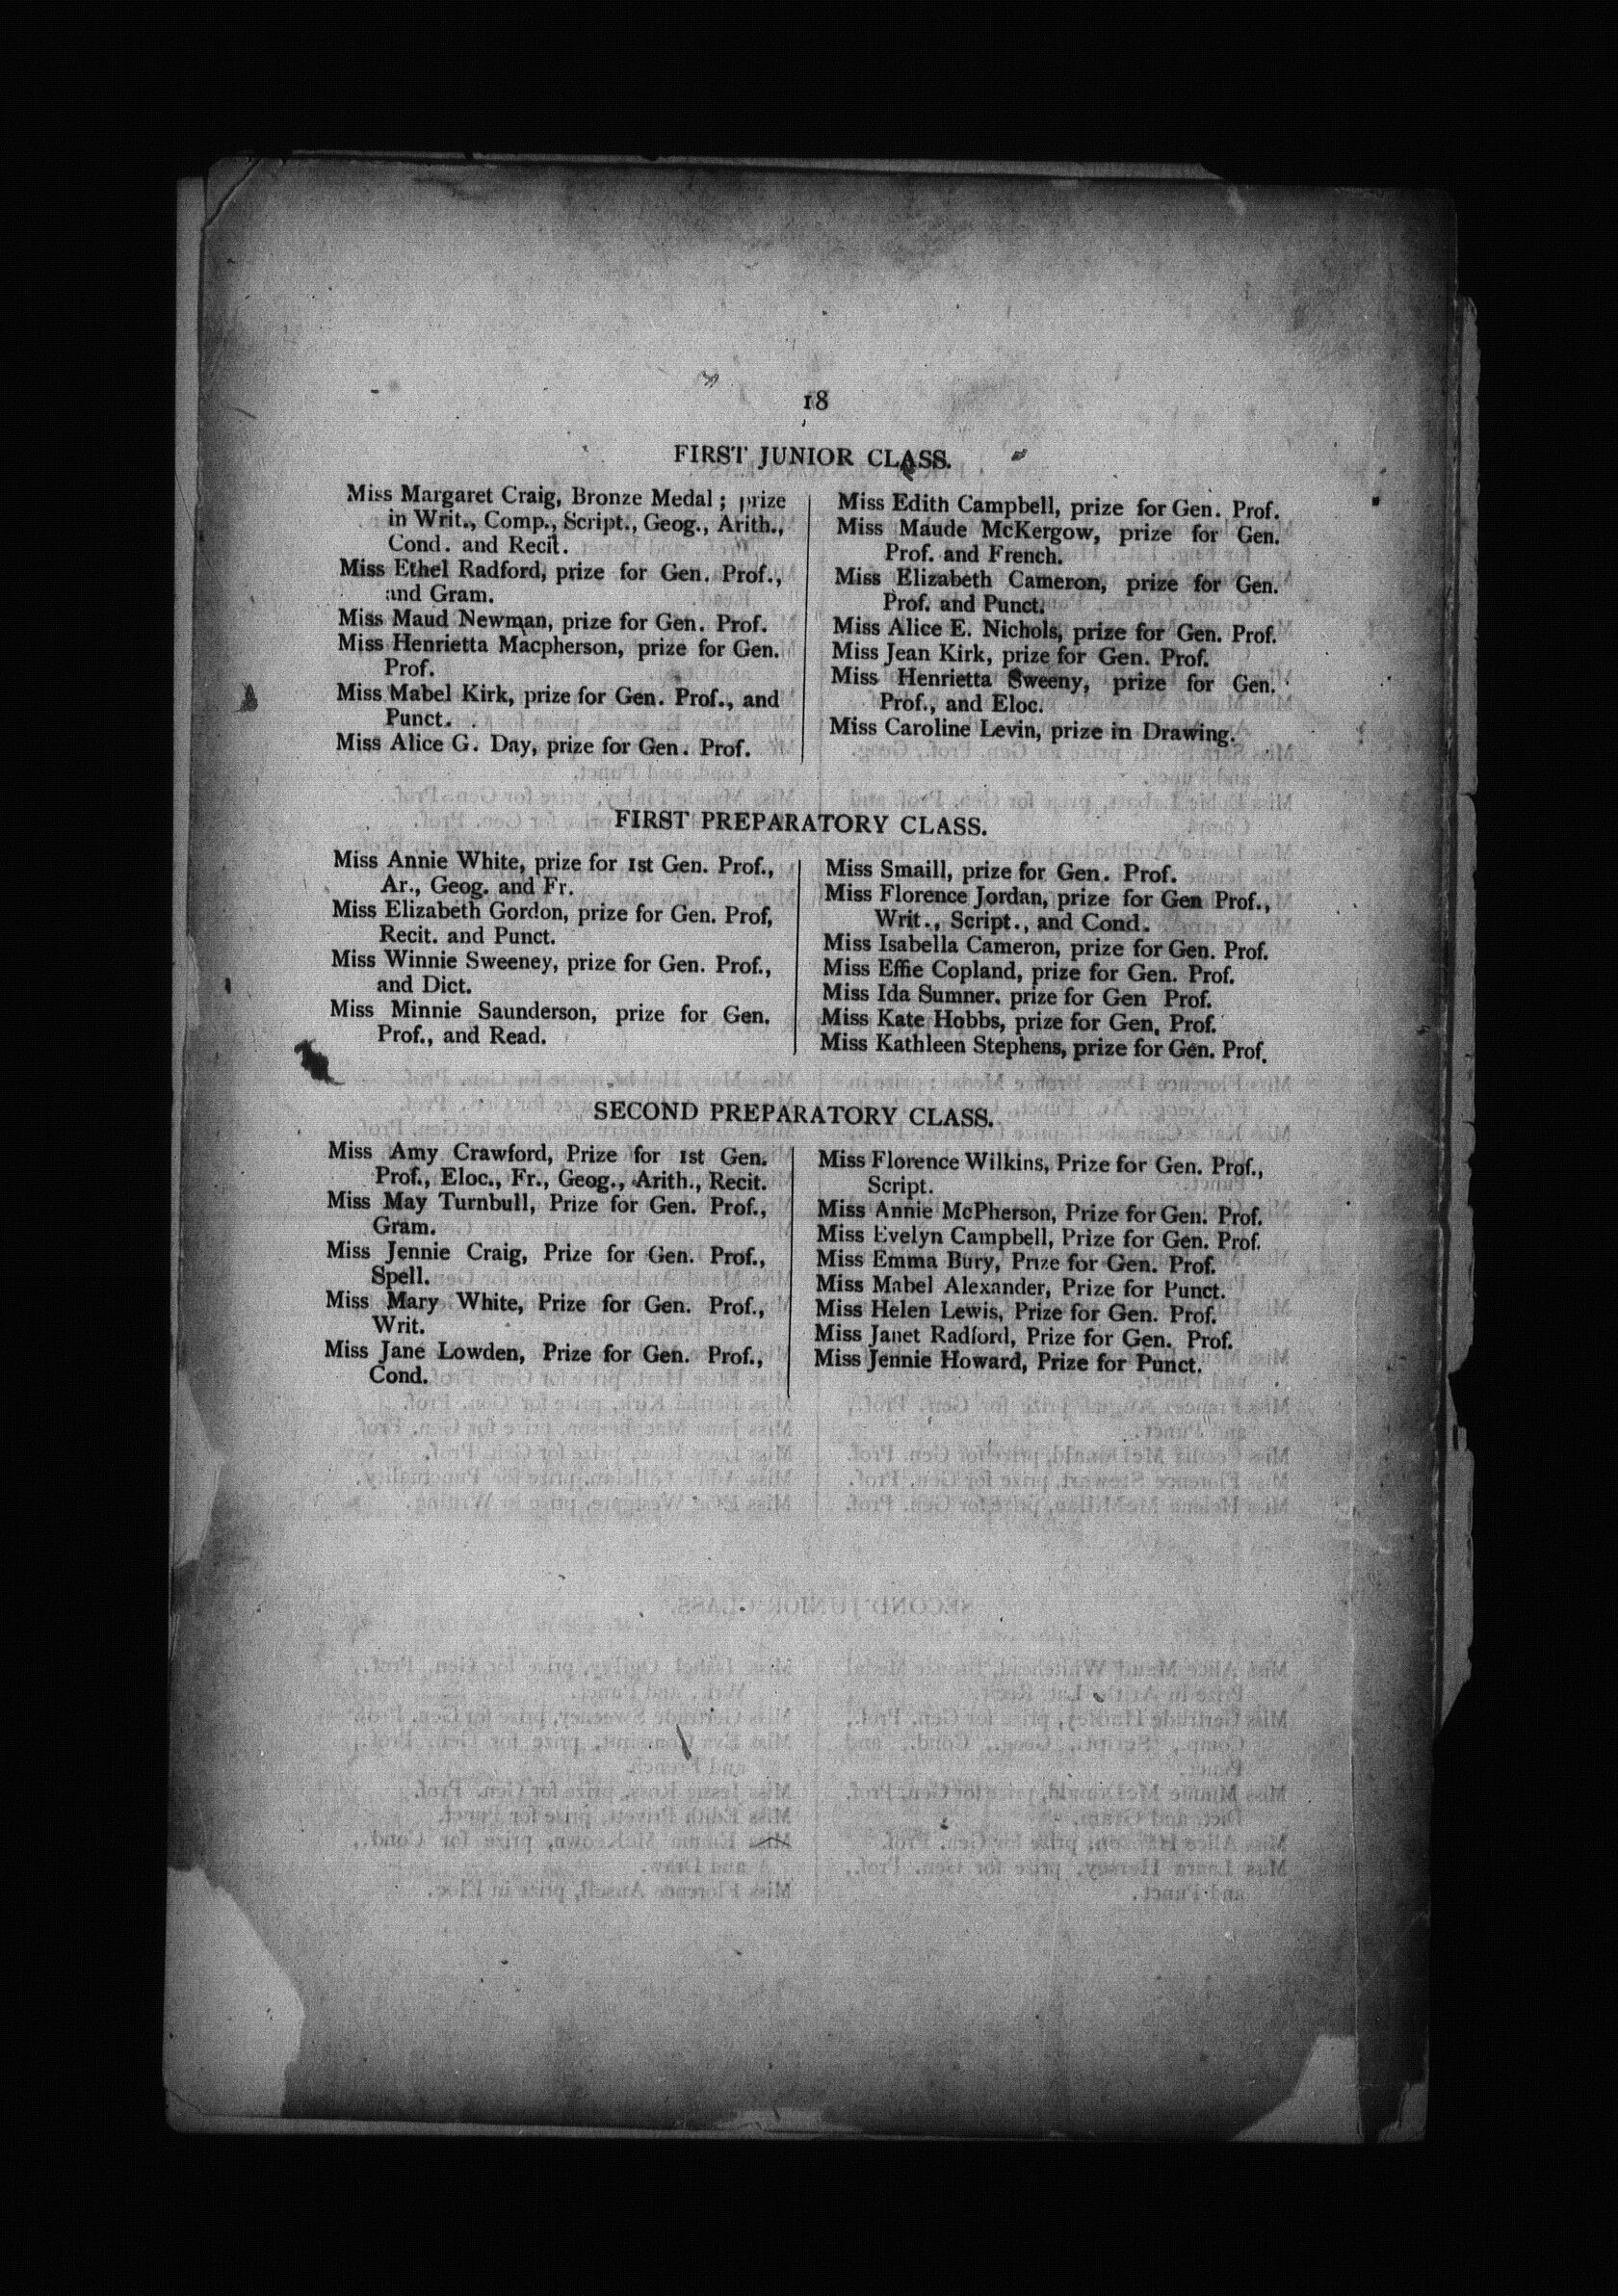 18
FIRST JUNIOR CLASS.
Miss Margaret Craig, Bronze Medal ; prize
in Writ., Comp., Script., Geog., Arith.,
Cond. and Recit.
Miss Ethel Radford, prize for Gen. Prof.,
and Gram.
Miss Maud Newman, prize for Gen. Prof.
Miss Henrietta Macpherson, prize for Gen.
Prof.
Miss Mabel Kirk, prize for Gen. Prof., and
Punct.
Miss Alice G. Day, prize for Gen. Prof.
Miss Edith Campbell, prize for Gen. Prof.
Miss Maude McKergow, prize for Gen.
Prof. and French.
Miss Elizabeth Cameron, prize for Gen.
Prof. and Punct.
Miss Alice E. Nichols, prize for Gen. Prof.
Miss Jean Kirk, prize for Gen. Prof.
Miss Henrietta Sweeny, prize for Gen.
Prof., and Eloc.
Miss Caroline Levin, prize in Drawing.
FIRST PREPARATORY CLASS.
Miss Annie White, prize for 1st Gen. Prof.,
Ar., Geog. and Fr.
Miss Elizabeth Gordon, prize for Gen. Prof,
Recit. and Punct.
Miss Winnie Sweeney, prize for Gen. Prof.,
and Dict.
Miss Minnie Saunderson, prize for Gen.
Prof., and Read.
Miss Smaill, prize for Gen. Prof.
Miss Florence Jordan, prize for Gen Prof.,
Writ., Script., and Cond.
Miss Isabella Cameron, prize for Gen. Prof.
Miss Effie Copland, prize for Gen. Prof.
Miss Ida Sumner. prize for Gen Prof.
Miss Kate Hobbs, prize for Gen. Prof.
Miss Kathleen Stephens, prize for Gen. Prof.
SECOND PREPARATORY CLASS.
Miss Amy Crawford, Prize for 1st Gen.
Prof., Eloc., Fr., Geog., Arith., Recit.
Miss May Turnbull, Prize for Gen. Prof.,
Gram.
Miss Jennie Craig, Prize for Gen. Prof.,
Spell.
Miss Mary White, Prize for Gen. Prof.,
Writ.
Miss Jane Lowden, Prize for Gen. Prof.,
Cond.
Miss Florence Wilkins, Prize for Gen. Prof.,
Script.
Miss Annie McPherson, Prize for Gen. Prof.
Miss Evelyn Campbell, Prize for Gen. Prof.
Miss Emma Bury, Prize for Gen. Prof.
Miss Mabel Alexander, Prize for Punct.
Miss Helen Lewis, Prize for Gen. Prof.
Miss Janet Radford, Prize for Gen. Prof.
Miss Jennie Howard, Prize for Punct.